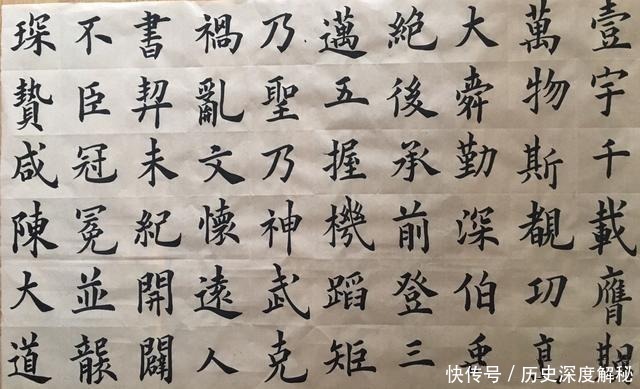 壹宇千載膺期
萬物斯覩功高
大舜勤深伯禹
絶後承前登三
邁五握機蹈矩
乃聖乃神武克
禍亂文懷遠人
書契未紀開闢
不臣冠冕並襲
琛贄咸陳大道
快传号／历史深度解秘